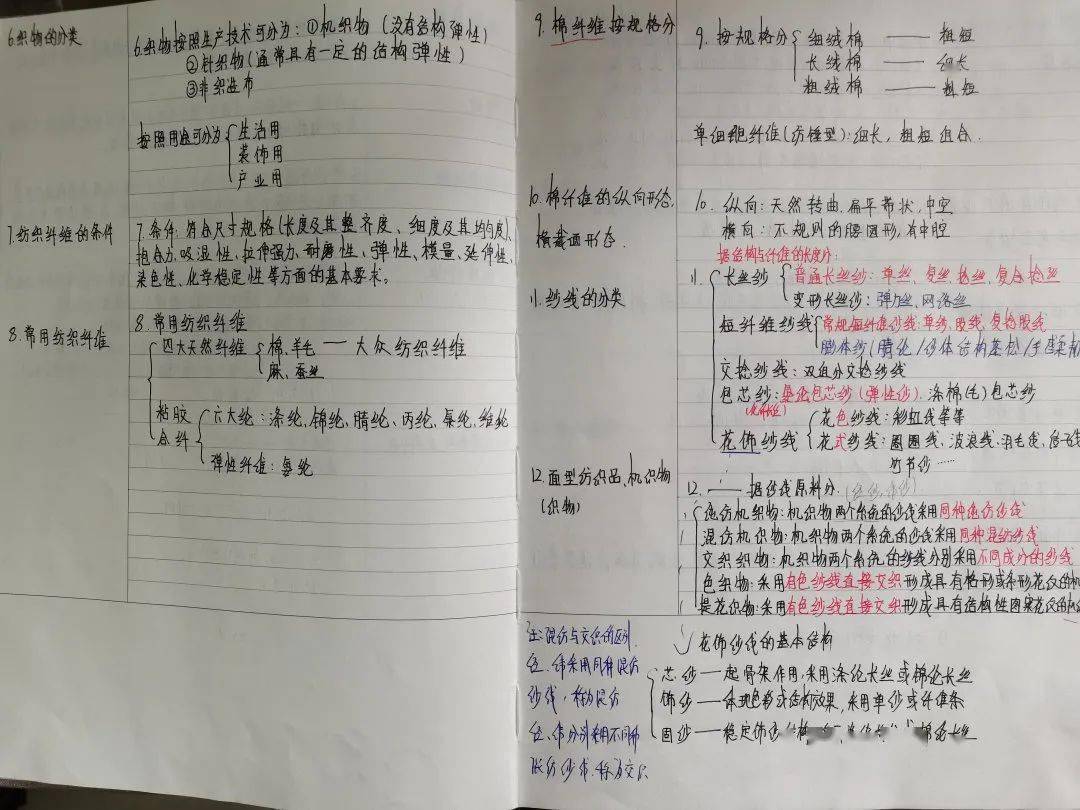 6.织物的分类
6.织物按照生产技术可分为：①机织物（没有结构弹性）
②针织物（通常具有一定的结构弹性）
③非织造布
按照用途可分为
生活用
装饰用
产业用
7.纺织纤维的条件
7.条件：符合尺寸规格（长度及其整齐度、细度及其均匀度）、
抱合力、吸湿性、拉伸强力、耐磨性、弹性、模量、延伸性、
染色性、化学稳定性等方面的基本要求。
8.常用纺织纤维
8.常用纺织纤维
四大天然纤维
棉、羊毛 — 大众纺织纤维
麻、蚕丝
粘胶
合纤
六大轮：涤纶、锦纶、腈纶、丙纶、氯纶、维纶
弹性纤维：氨纶
9.棉纤维按规格分
9.按规格分
细绒棉 —— 粗短
长绒棉 —— 细长
粗绒棉 —— 粗短
单细胞纤维（纺锤型）：细长，粗短组合.
10.棉纤维的纵向形态，
横截面形态.
10.纵向：天然转曲，扁平带状，中空
横向：不规则的腰圆形，有中腔
据结构与纤维的长度序：
11.纱线的分类
11.
长丝纱
普通长丝纱：单丝、复丝、捻丝、复合捻丝
变形长丝纱：弹力丝、网络丝
短纤维纱线
常规短纤维纱线：单纱、股线、复捻股线
膨体纱（腈纶/
交捻纱线：双组分交捻纱线
包芯纱：氨纶包芯纱（弹性纱）.涤棉（毛）包芯纱
花饰纱线
花色纱线：彩虹线等等
花式纱线：圈圈线、波浪线、羽毛线、
竹节纱……
12.面型纺织品、机织物
（织物）
12. —— 据纱线原料分.
纯纺机织物：机织物两个系统的纱线采用同种纯纺纱线
混纺机织物：机织物两个系统的纱线采用同种混纺纱线
交织织物：机织物两个系统的纱线分别采用不同成分的纱线
色织物：采用有色纱线直接交织形成具有格形或条形花纹的机
提花织物：采用有色纱线直接交织形成具有结构性图案花纹的
注：混纺与交织的区别.
经、纬采用同种混纺
纱线，称为混纺
经、纬分别采用不同种
纱线，称为交织
√ 花饰纱线的基本结构
芯纱 — 起骨架作用，采用涤纶长丝或锦纶长丝
饰纱 — 体现色彩或结构效果，采用单纱或纤维条
固纱 — 稳定饰纱结构 锦纶长丝